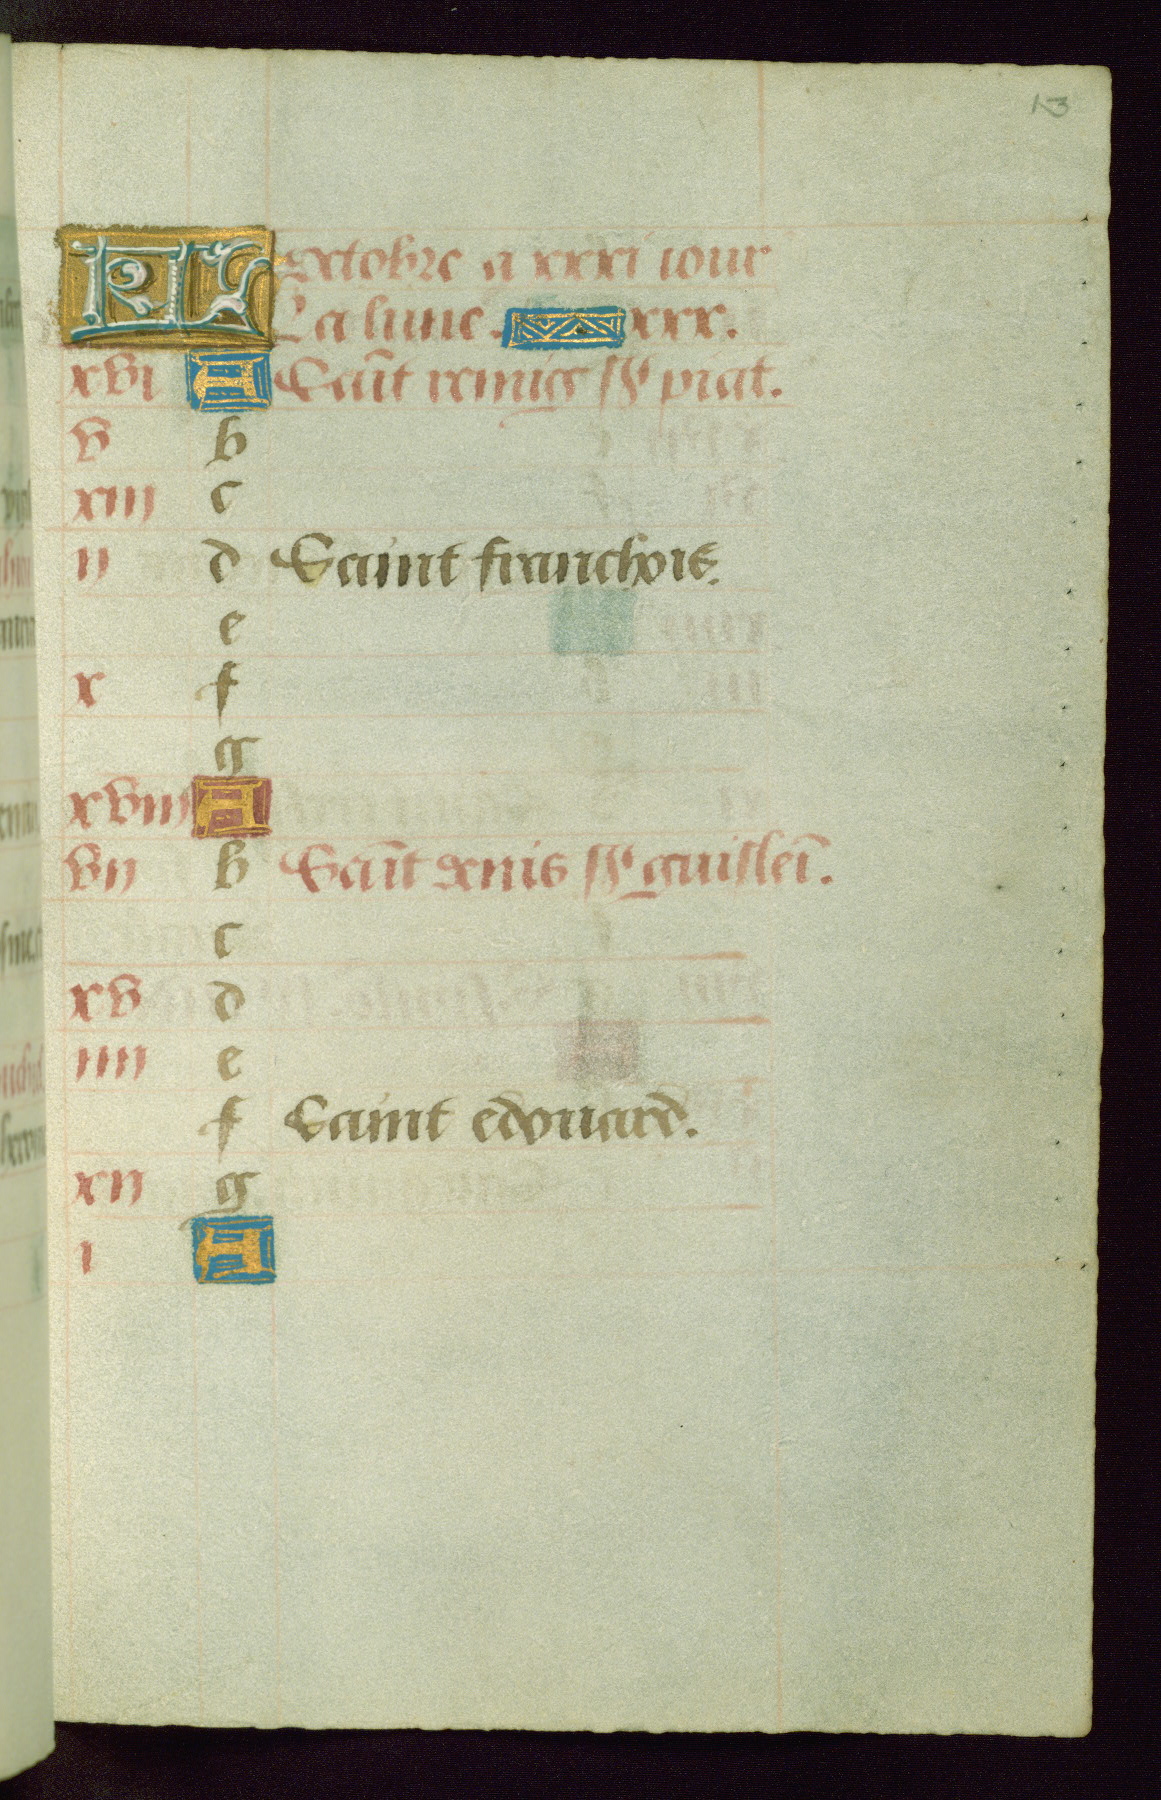 13
KL Octobre a xxxi iour
La lune. xxx.
xvi A Saīt remies sꝭ piat.
v b
xiii c
ii d Saint franchois.
e
x f
g
xviii A
vii b Saīt denis sꝭ guisleī.
c
xv d
iiii e
f Saint edouard.
xii g
i A